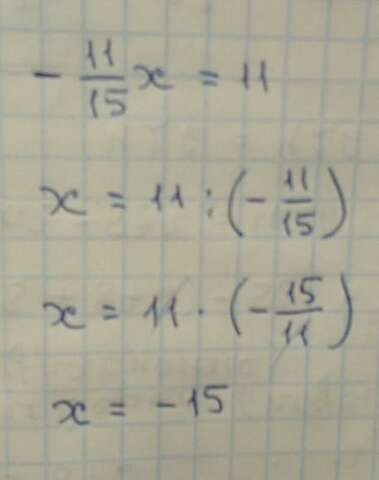 - 11/15 x = 11
x = 11 : (- 11/15)
x = 11 · (- 15/11)
x = -15